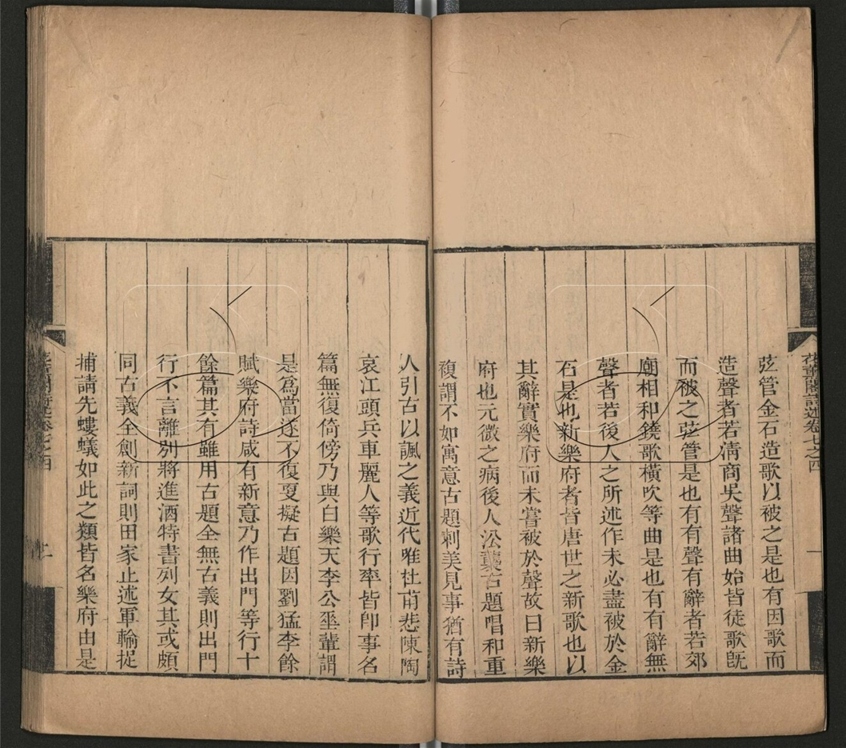 弦管金石造歌以被之是也有因歌而
造聲者若清商吳聲諸曲始皆徒歌旣
而被之弦管是也有有聲有辭者若郊
廟相和鐃歌橫吹等曲是也有有辭無
聲者若後人之所述作未必盡被於金
石是也新樂府者皆唐世之新歌也以
其辭實樂府而未嘗被於聲故曰新樂
府也元微之病後人沿襲古題唱和重
複謂不如寓意古題刺美見事猶有詩
人引古以諷之義近代唯杜甫悲陳陶
哀江頭兵車麗人等歌行率皆卽事名
篇無復倚傍乃與白樂天李公垂輩謂
是爲當遂不復更擬古題因劉猛李餘
賦樂府詩咸有新意乃作出門等行十
餘篇其有雖用古題全無古義則出門
行不言離別將進酒特書列女其或頗
同古義全創新詞則田家止述軍輸捉
捕請先螻蟻如此之類皆名樂府由是